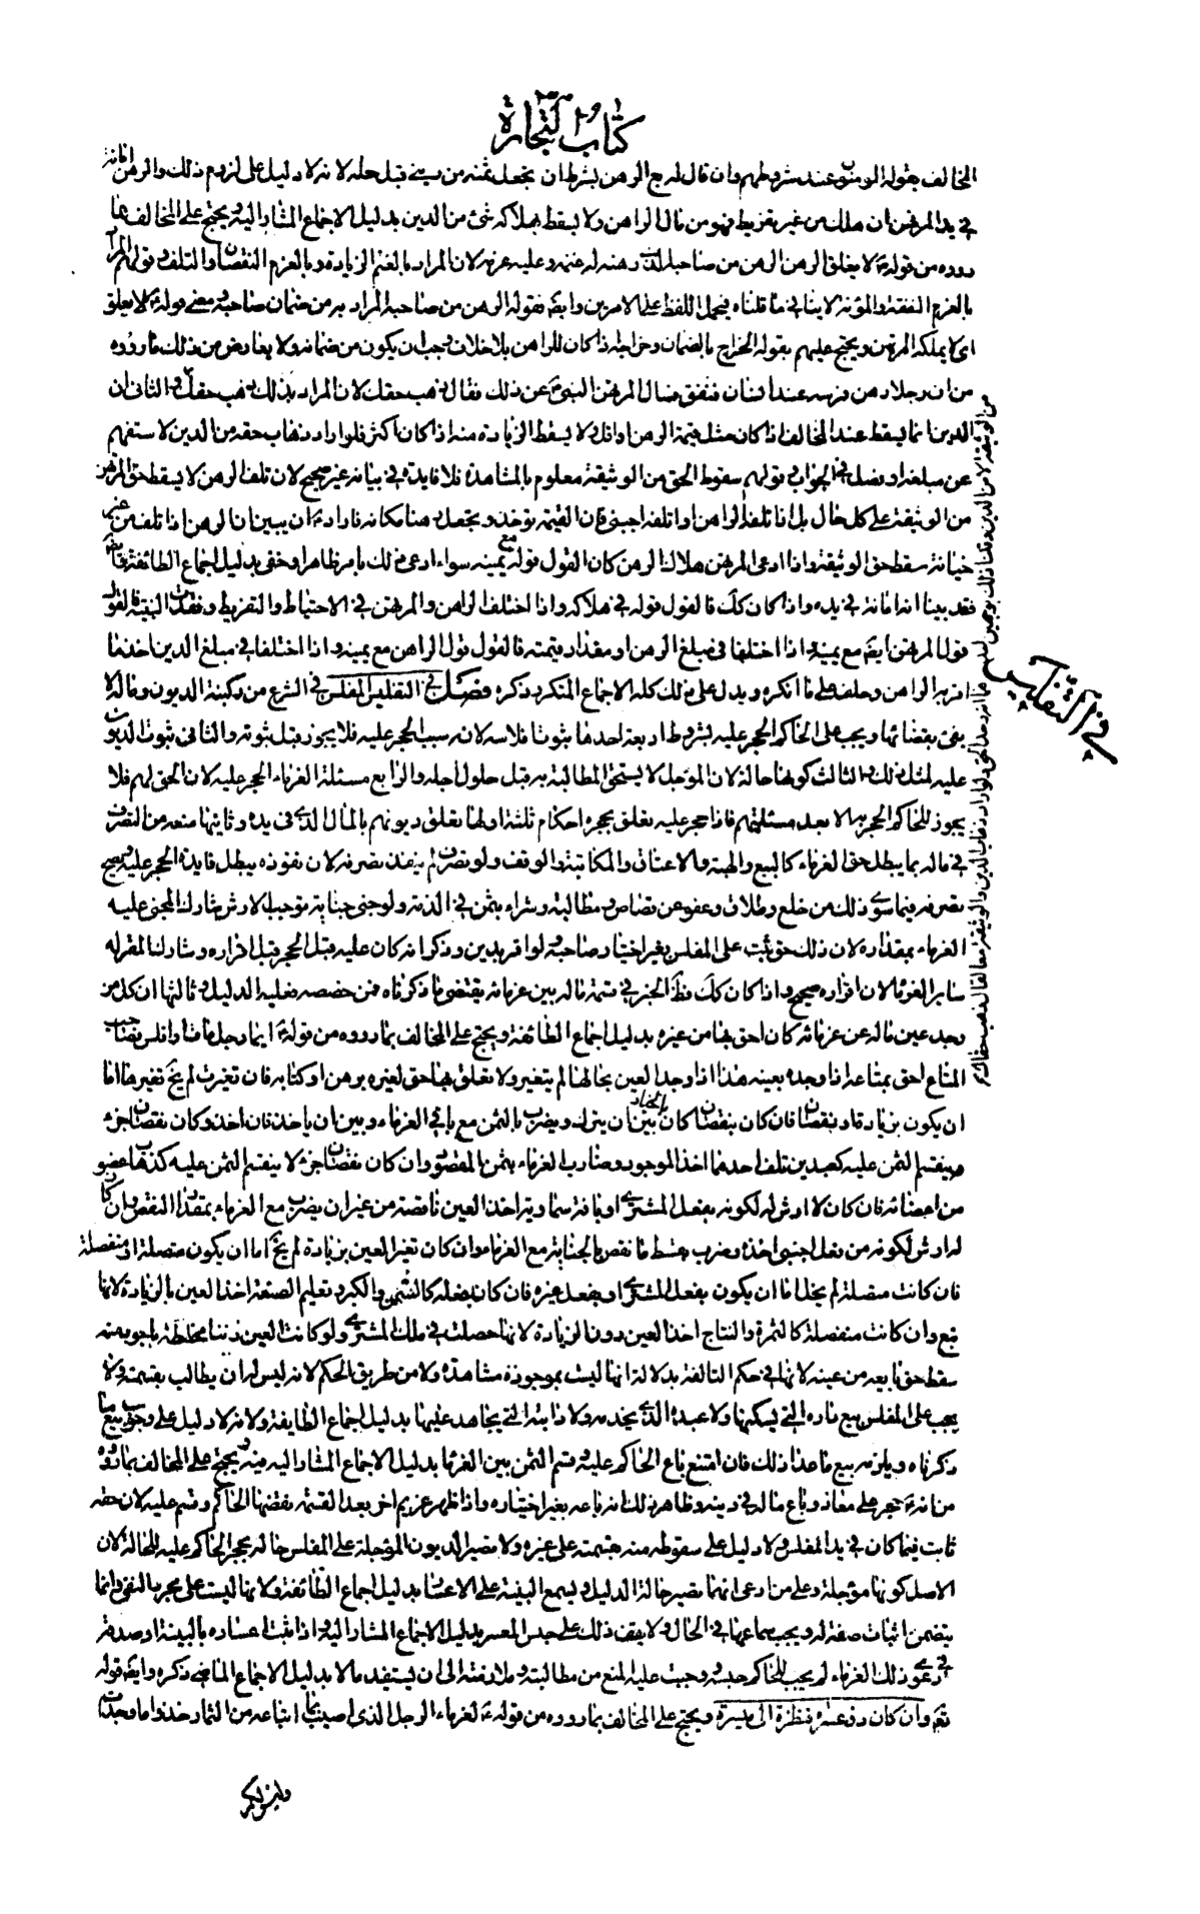 كتاب التجارة
المخالف بقوله المؤمنون عند شروطهم وان قال له بع الرهن بشرط ان تجعل ثمنه من ديني قبل حله لانه لا دليل على لزوم ذلك والرهن امانة
في يد المرتهن ان هلك من غير تفريط فهو من مال الراهن ولا يسقط بهلاكه شئ من الدين بدليل الاجماع المشار اليه ويحتج على المخالف بما
رووه من قوله ع لا يغلق الرهن الرهن من صاحبه الذى رهنه له غنمه وعليه غرمه لان المراد بالغنم الزيادة وبالغرم النقصان والتلف وقولهم المراد
بالغرم النفقة والمؤنة لا ينافي ما قلناه فيحمل اللفظ على الامرين وايضا فقوله الرهن من صاحبه المراد به من ضمان صاحبه ومعنى قوله ع لا يغلق
اى لا يملكه المرتهن ويحتج عليهم بقوله الخراج بالضمان وخراجه اذا كان للراهن بلا خلاف وجب ان يكون من ضمانه ولا يعارض من ذلك ما رووه
من ان رجلا رهن فرسه عند انسان فنفق فسال المرتهن النبي ص عن ذلك فقال ذهب حقك لان المراد بذلك ذهب حقك في الثانى ان
الدين انما يسقط عند المخالف اذا كان مثل قيمة الرهن او اقل ولا يسقط الزيادة منه اذا كان اكثر فلو اراد ذهاب حقه من الدين لاستفهم
عن مبلغه او فصل في الجواب وقولهم سقوط الحق من الوثيقة معلوم بالمشاهدة فلا فايدة في بيانه غير صحيح لان تلف الرهن لا يسقط حق المرتهن
من الوثيقة على كل حال بل اذا تلفه الراهن او اتلفه اجنبي فان القيمة تؤخذ وتجعل رهنا مكانه فاراد ع ان يبين ان الرهن اذا تلف من غير
خيانة سقط حق الوثيقة واذا ادعى المرتهن هلاك الرهن كان القول قوله مع يمينه سواء ادعى ذلك بامر ظاهر او خفى بدليل اجماع الطائفة وايضا
فقد بينا انه امانة في يده واذا كان كك فالقول قوله في هلاكه واذا اختلف الراهن والمرتهن في الاحتياط والتفريط وفقدت البينة فالقول
قول المرتهن ايضا مع يمينه واذا اختلفا في مبلغ الرهن او مقدار قيمته فالقول قول الراهن مع يمينه واذا اختلفا في مبلغ الدين اخذ ما
اقر به الراهن وحلف على ما انكره ويدل على ذلك كله الاجماع المتكرر ذكره فصل في التفليس المفلس في الشرع من ركبته الديون وماله لا
يفى بقضائها ويجب على الحاكم الحجر عليه بشروط اربعة احدها ثبوت افلاسه لانه سبب الحجر عليه فلا يجوز قبل ثبوته والثانى ثبوت الديون
عليه لمثل ذلك الثالث كونها حالة لان المؤجل لا يستحق المطالبة به قبل حلول اجله والرابع مسئلة الغرماء الحجر عليه لان الحق لهم فلا
يجوز للحاكم الحجر به الا بعد مسئلتهم فاذا حجر عليه تعلق بحجره احكام ثلثة اولها تعلق ديونهم بالمال الذى في يده وثانيها منعه من التصرف
في ماله بما يبطل حق الغرماء كالبيع والهبة والاعتاق والمكاتبة والوقف ولو تصرف لم ينفذ تصرفه لان نفوذه يبطل فايدة الحجر عليه ويصح
تصرفه فيما سوى ذلك من خلع وطلاق وعفو عن قصاص ومطالبة وشراء بثمن في الذمة ولو جنى جناية توجب الارش شارك المجني عليه
الغرماء بمقداره لان ذلك حق ثبت على المفلس بغير اختيار صاحبه ولو اقر بدين وذكر انه كان عليه قبل الحجر قبل اقراره وشارك المقر له
ساير الغرماء لان اقراره صحيح واذا كان كك نظر الحبر في قسمة ماله بين غرمائه يقتضى ما ذكرناه فمن خصصه فعليه الدليل وثالثها ان كل من
وجد عين ماله من غرمائه كان احق بها من غيره بدليل اجماع الطائفة ويحتج على المخالف بما رووه من قوله ع ايما رجل مات او افلس فصاحب
المتاع احق بمتاعه اذا وجده بعينه هذا اذا وجد العين بحالها لم يتغير ولا تعلق بها حق لغيره برهن او كتابة فان تغيرت لم يخ تغيرها اما
ان يكون بزيادة او نقصان فان كان بنقصان كان بالخيار بين ان يترك ويضرب بالثمن مع باقي الغرماء وبين ان ياخذ فان اخذ وكان نقصان جزء
وينقسم الثمن عليه كعبدين تلف احدهما اخذ الموجود وضارب الغرماء بثمن المفقود وان كان نقصان جزء لا ينقسم الثمن عليه كذهاب عضو
من اعضائه فان كان لا ارش له لكونه بفعل المشترى او بافة سماوية اخذ العين ناقصة من غير ان يضرب مع الغرماء بمقدار النقص وان كان
له ارش لكونه من فعل اجنبى اخذه وضرب بقسط ما نقص بالجناية مع الغرماء وان كان تغير العين بزيادة لم يخ اما ان يكون متصلة او منفصلة
فان كانت متصلة لم يخل اما ان يكون بفعل المشترى او بفعل غيره فان كان بفعله كالسمن والكبر وتعليم الصنعة اخذ العين بالزيادة لانها
تبع وان كانت منفصلة كالثمرة والنتاج اخذ العين دون الزيادة لانها حصلت في ملك المشترى ولو كانت العين زيتا فخلطه باجود منه
سقط حق بايعه من عينه لانها في حكم التالفة بدلالة انها ليست بموجودة مشاهدة ولا من طريق الحكم لانه ليس له ان يطالب بقسمته ولا
يجب على المفلس بيع داره التي يسكنها ولا عبده الذى يخدمه ولا دابته التى يجاهد عليها بدليل اجماع الطايفة ولانه لا دليل على وجوب بيع ما
ذكرناه ويلزمه بيع ما عدا ذلك فان امتنع باع الحاكم عليه وقسم الثمن بين الغرماء بدليل الاجماع المشار اليه فيه ويحتج على المخالف بما رووه
من انه ع حجر على معاذ وباع ماله في دينه وظاهر ذلك انه باعه بغير اختياره واذا ظهر غريم اخر بعد القسمة نقضها الحاكم وقسم عليه لان حقه
ثابت فيما كان في يد المفلس ولا دليل على سقوطه منه بقسمته على غيره ولا تصير الديون المؤجلة على المفلس حالة بحجر الحاكم عليه للحالة لان
الاصل كونها مؤجلة وعلى من ادعى انها تصير حالة الدليل ويسمع البينة على الاعسار بدليل اجماع الطائفة ولانها ليست على مجرد النفى وانما
يتضمن اثبات صفة له ويجب سماعها في الحال ولا يقف ذلك على حبس المعسر بدليل الاجماع المشار اليه واذا ثبت اعساره بالبينة او صدقه
في دعوى ذلك الغرماء لم يجب للحاكم حبسه ووجبت عليه المنع من مطالبته وملازمته الى ان يستفيد مالا بدليل الاجماع الماضى ذكره وايضا قوله
تعالى وان كان ذو عسرة فنظرة الى ميسرة ويحتج على المخالف بما رووه من قوله ع لغرماء الرجل الذى اصيب فيما ابتاعه من الثمار خذوا ما وجدتم
وليس لكم
من الوثيقة لا من الدين وقلنا ذلك بوجهين
في التفليس